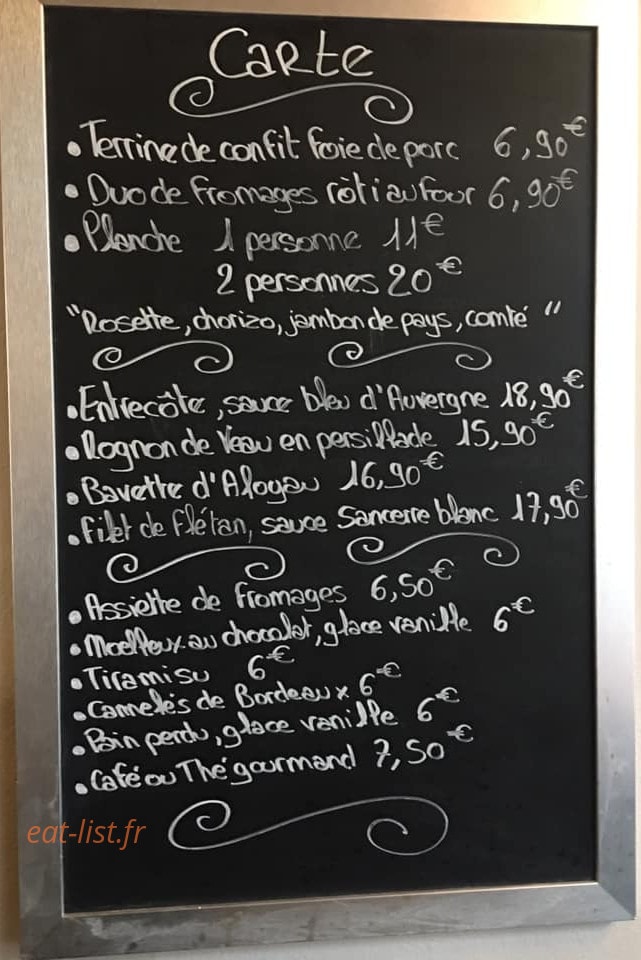 Carte
• Terrine de confit foie de porc 6,90€
• Duo de fromages rôti au four 6,90€
• Planche 1 personne 11€
2 personnes 20€
"Rosette, chorizo, jambon de pays, comté"
• Entrecôte, sauce bleu d'Auvergne 18,90€
• Rognon de Veau en persillade 15,90€
• Bavette d'Aloyau 16,90€
• Filet de Flétan, sauce Sancerre blanc 17,90€
• Assiette de fromages 6,50€
• Moelleux au chocolat, glace vanille 6€
• Tiramisu 6€
• Cannelés de Bordeaux 6€
• Pain perdu, glace vanille 6€
• Café ou Thé gourmand 7,50€
eat-list.fr